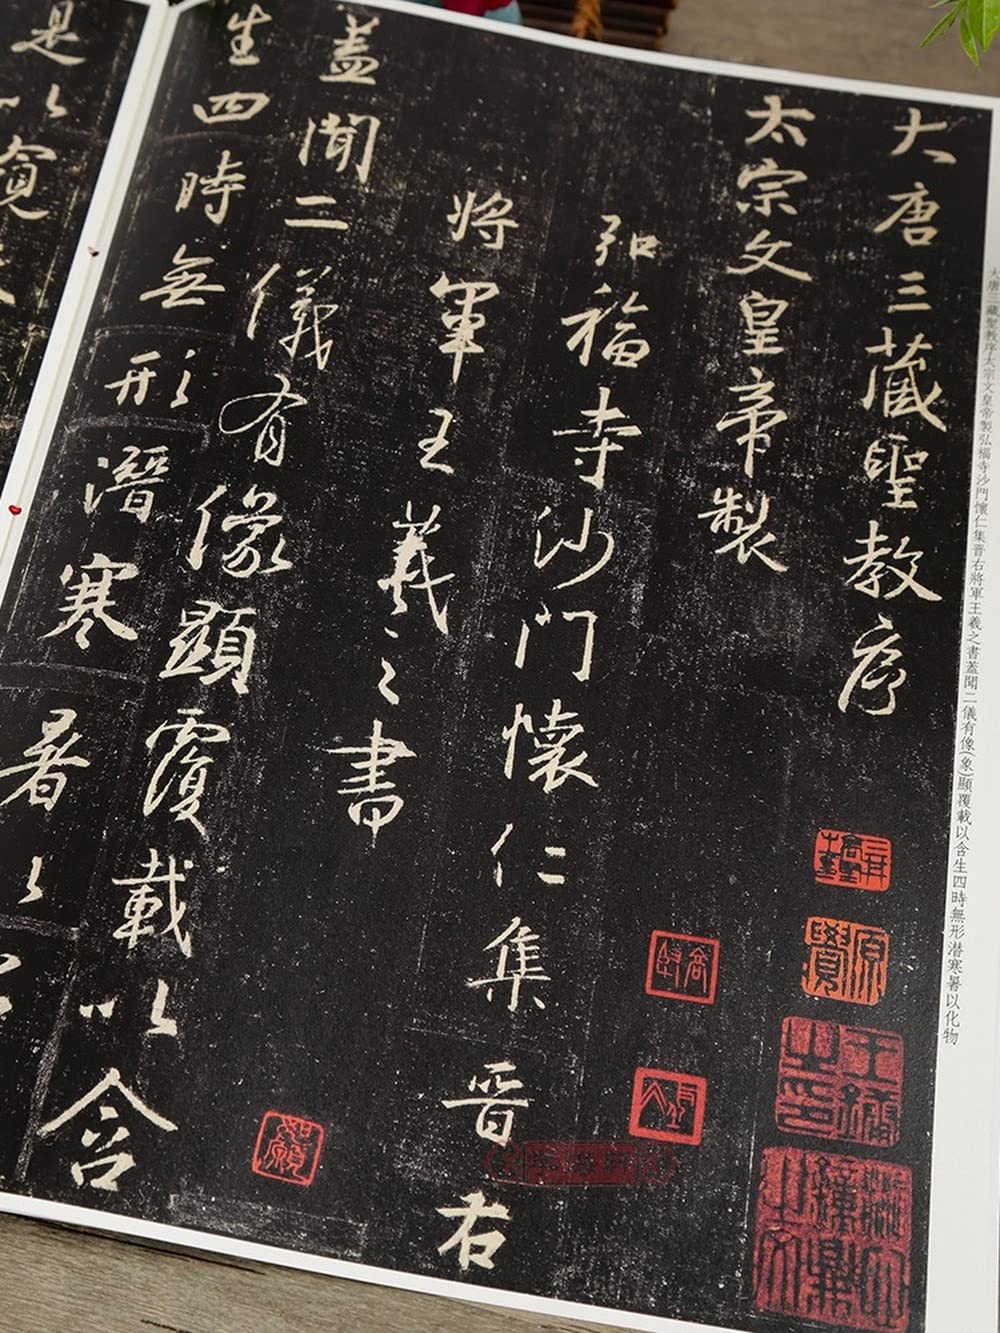 大唐三藏聖教序
太宗文皇帝製
弘福寺沙門懷仁集晉右
將軍王羲之書
蓋聞二儀有像顯覆載以含
生四時無形潛寒暑以
是以窺
大唐三藏聖教序太宗文皇帝製弘福寺沙門懷仁集晋右將軍王羲之書蓋聞二儀有像(象)顯覆載以含生四時無形潜寒暑以化物